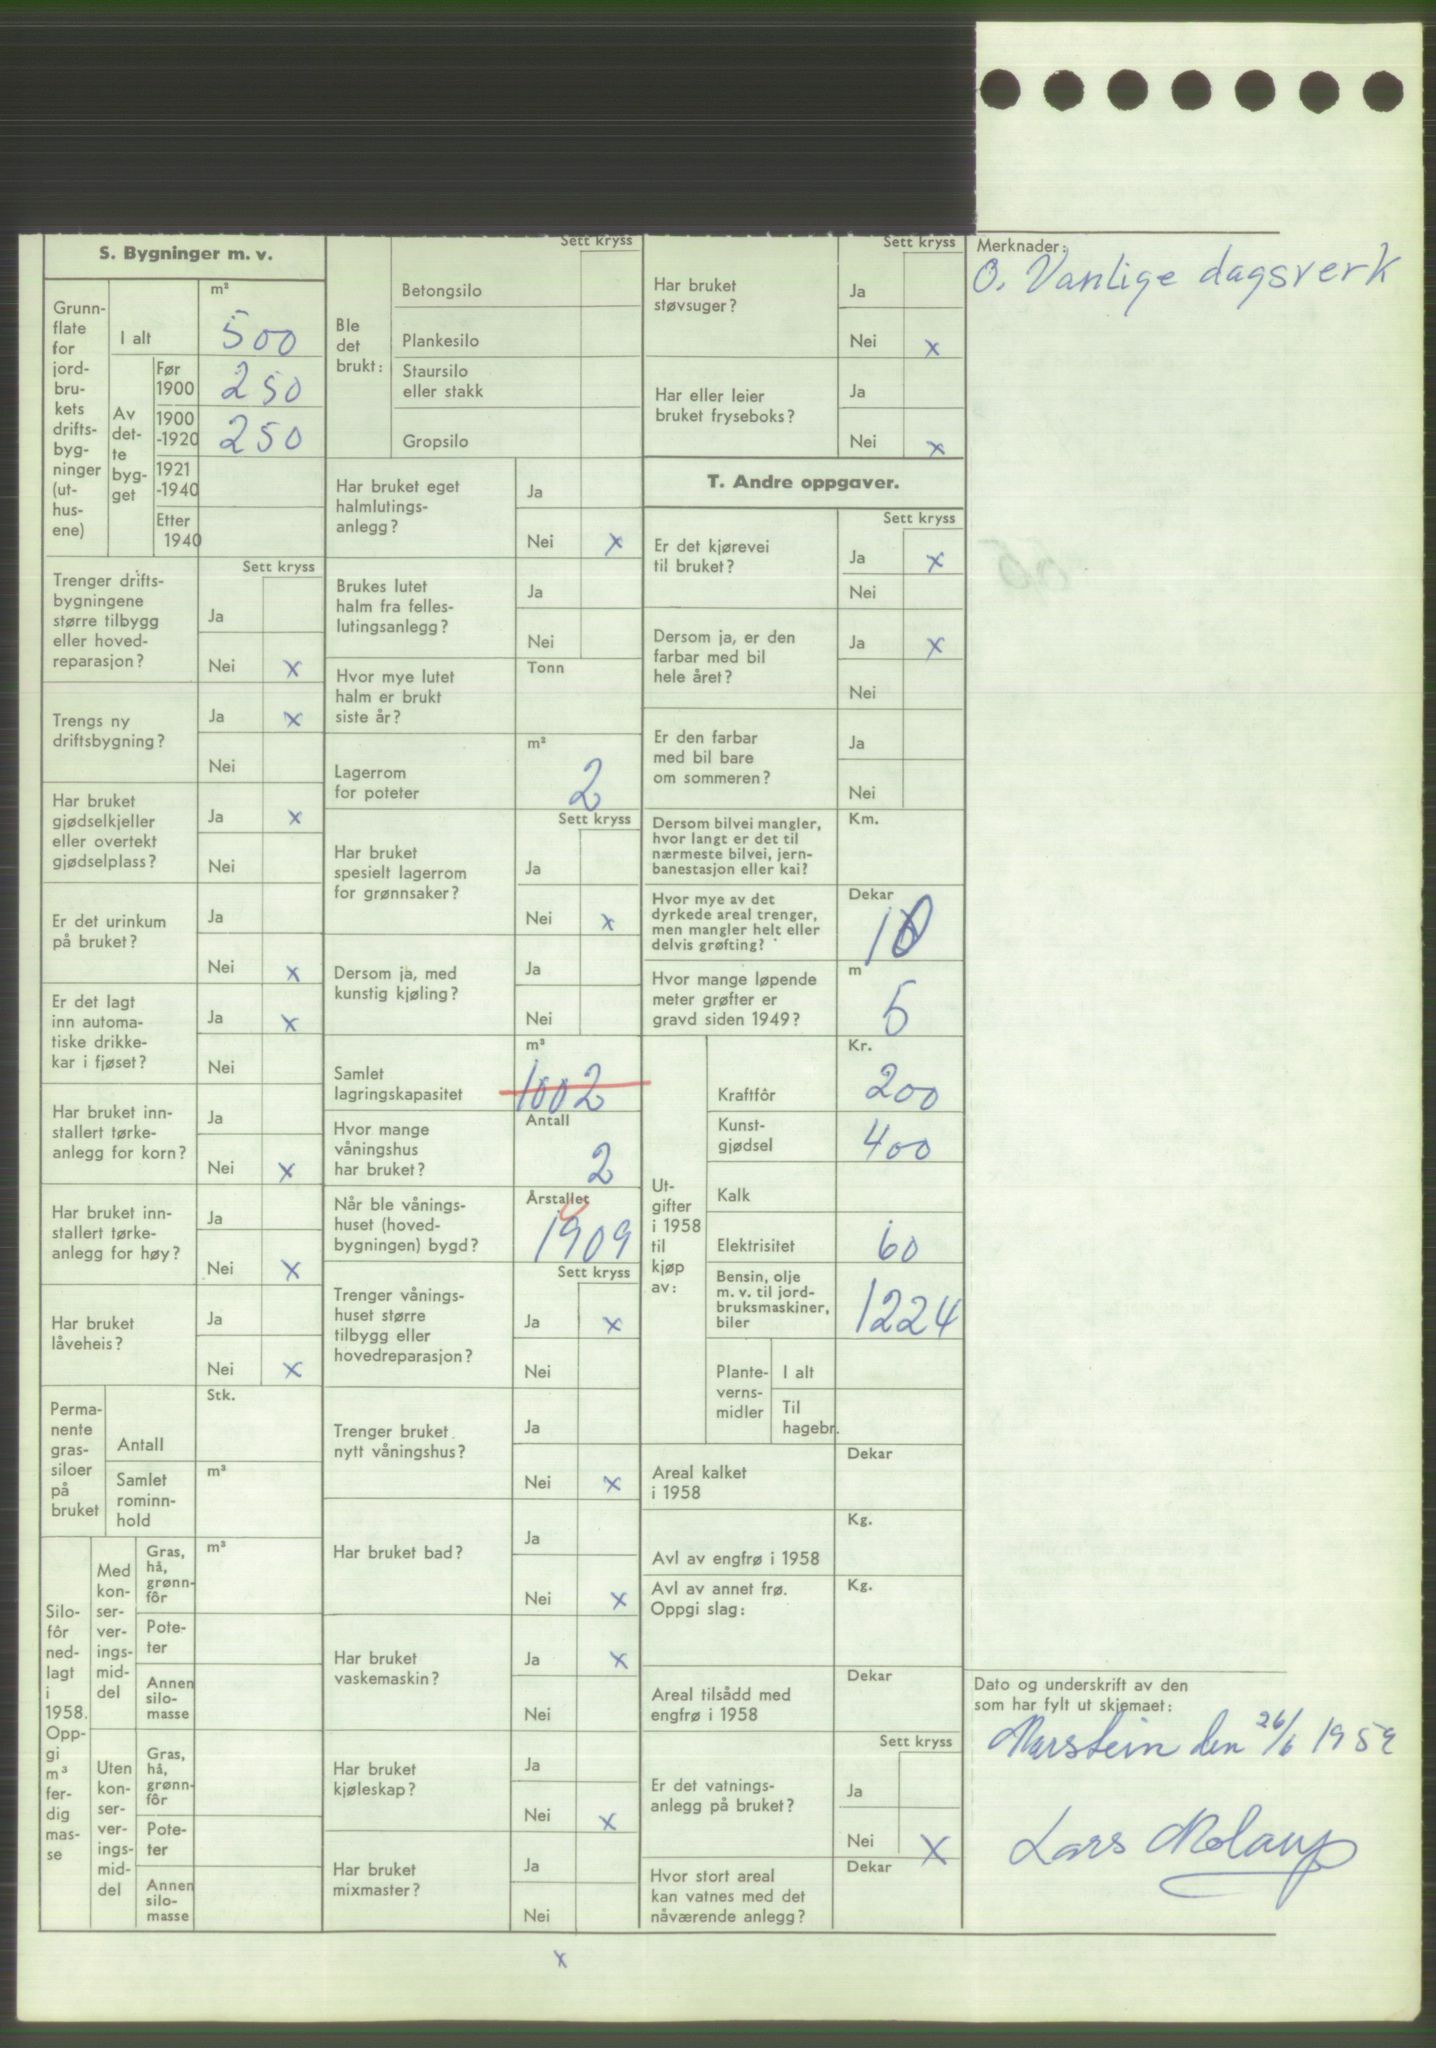 S. Bygninger m. v.
Grunn-
flate
for
jord-
bru-
kets
drifts-
byg-
ninger
(ut-
hus-
ene)
I alt
m²
500
Av
det-
te
byg-
get
Før
1900
250
1900
-1920
250
1921
-1940
Etter
1940
Sett kryss
Trenger drifts-
bygningene
større tilbygg
eller hoved-
reparasjon?
Ja
Nei x
Trengs ny
driftsbygning?
Ja x
Nei
Har bruket
gjødselkjeller
eller overtekt
gjødselplass?
Ja x
Nei
Er det urinkum
på bruket?
Ja
Nei x
Er det lagt
inn automa-
tiske drikke-
kar i fjøset?
Ja x
Nei
Har bruket inn-
stallert tørke-
anlegg for korn?
Ja
Nei x
Har bruket inn-
stallert tørke-
anlegg for høy?
Ja
Nei x
Har bruket
låveheis?
Ja
Nei x
Perma-
nente
gras-
siloer
på
bruket
Antall
Stk.
Samlet
rominn-
hold
m³
Silo-
fôr
ned-
lagt
i
1958.
Opp-
gi
m³
fer-
dig
mas-
se
Med
kon-
ser-
ver-
ings-
mid-
del
Gras,
hå,
grønn-
fôr
m³
Pote-
ter
Annen
silo-
masse
Uten
kon-
ser-
ver-
ings-
mid-
del
Gras,
hå,
grønn-
fôr
Pote-
ter
Annen
silo-
masse
Sett kryss
Ble
det
brukt:
Betongsilo
Plankesilo
Staursilo
eller stakk
Gropsilo
Har bruket eget
halmlutings-
anlegg?
Ja
Nei x
Brukes lutet
halm fra felles-
lutingsanlegg?
Ja
Nei
Hvor mye lutet
halm er brukt
siste år?
Tonn
Lagerrom
for poteter
m³
2
Sett kryss
Har bruket
spesielt lagerrom
for grønnsaker?
Ja
Nei x
Dersom ja, med
kunstig kjøling?
Ja
Nei
Samlet
lagringskapasitet
m³
1002
Hvor mange
våningshus
har bruket?
Antall
2
Når ble vånings-
huset (hoved-
bygningen) bygd?
Årstallet
1909
Sett kryss
Trenger vånings-
huset større
tilbygg eller
hovedreparasjon?
Ja x
Nei
Trenger bruket
nytt våningshus?
Ja
Nei x
Har bruket bad?
Ja
Nei x
Har bruket
vaskemaskin?
Ja x
Nei
Har bruket
kjøleskap?
Ja
Nei x
Har bruket
mixmaster?
Ja
Nei
x
Sett kryss
Har bruket
støvsuger?
Ja
Nei x
Har eller leier
bruket fryseboks?
Ja
Nei x
T. Andre oppgaver.
Sett kryss
Er det kjørevei
til bruket?
Ja x
Nei
Dersom ja, er den
farbar med bil
hele året?
Ja x
Nei
Er den farbar
med bil bare
om sommeren?
Ja
Nei
Dersom bilvei mangler,
hvor langt er det til
nærmeste bilvei, jern-
banestasjon eller kai?
Km.
Hvor mye av det
dyrkede areal trenger,
men mangler helt eller
delvis grøfting?
Dekar
10
Hvor mange løpende
meter grøfter er
gravd siden 1949?
m
5
Ut-
gifter
i 1958
til
kjøp
av:
Kr.
Kraftfôr 200
Kunst-
gjødsel 400
Kalk
Elektrisitet 60
Bensin, olje
m. v. til jord-
bruksmaskiner,
biler
1224
Plante-
verns-
midler
I alt
Til
hagebr.
Areal kalket
i 1958
Dekar
Avl av engfrø i 1958
Kg.
Avl av annet frø.
Oppgi slag:
Kg.
Areal tilsådd med
engfrø i 1958
Dekar
Sett kryss
Er det vatnings-
anlegg på bruket?
Ja
Nei x
Hvor stort areal
kan vatnes med det
nåværende anlegg?
Dekar
Merknader:
O. Vanlige dagsverk
Dato og underskrift av den
som har fylt ut skjemaet:
Marstein den 26/6 1959
Lars